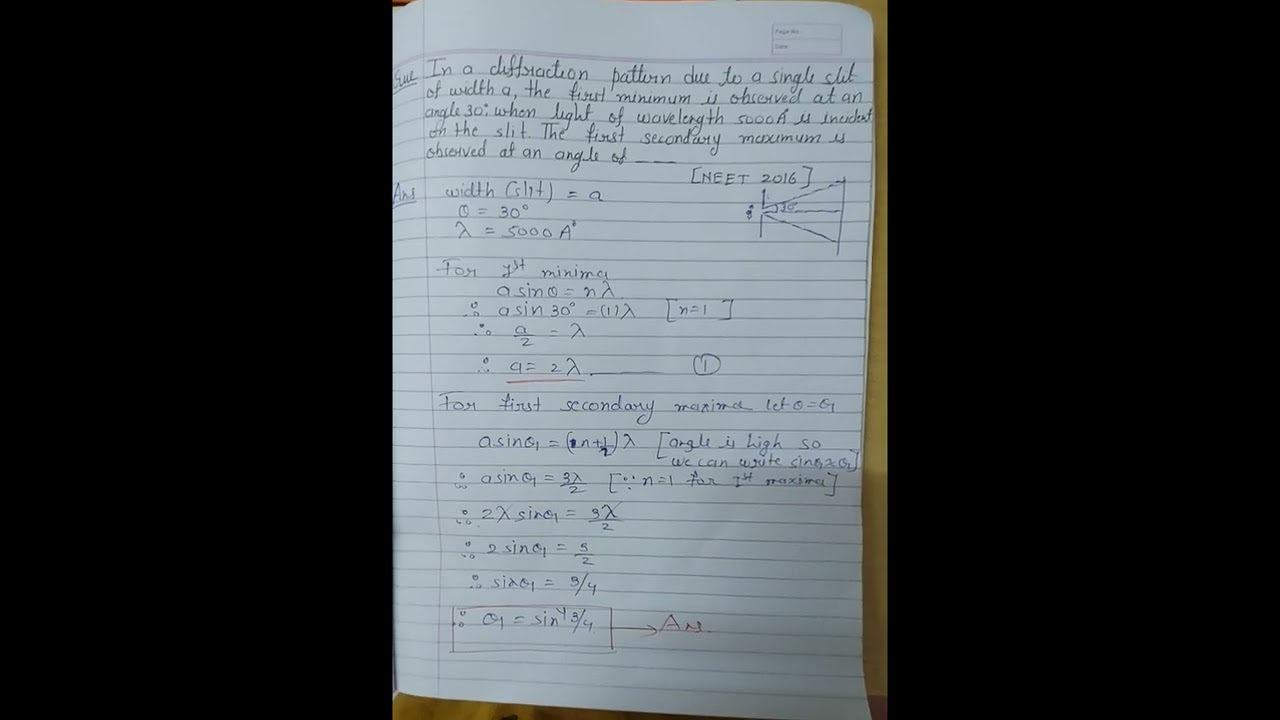 Page No.
Date
Que In a diffraction pattern due to a single slit
of width a, the first minimum is observed at an
angle 30° when light of wavelength 5000Å is incident
on the slit. The first secondary maximum is
observed at an angle of ___
[NEET 2016]
Ans width (slit) = a
θ = 30°
λ = 5000 A°
30°
For 1st minima
a sinθ = nλ
∴ a sin 30° = (1)λ [n=1]
∴ a/2 = λ
∴ a = 2λ. ——— ①
For first secondary maxima let θ=θ1
a sinθ1 = (n+1/2)λ [angle is high so
we can write sinθ1≈θ1]
∴ a sinθ1 = 3λ/2 [∵ n=1 for 1st maxima]
∴ 2λ sinθ1 = 3λ/2
∴ 2 sinθ1 = 3/2
∴ sinθ1 = 3/4
∴ θ1 = sin⁻¹ 3/4 → Ans.